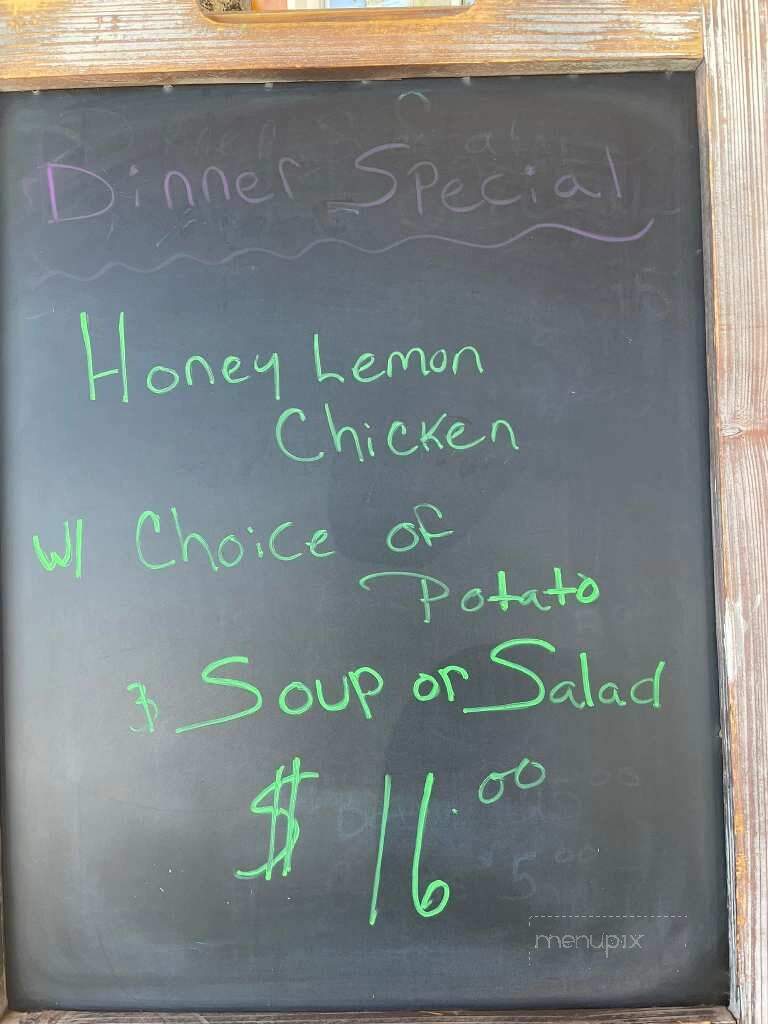 Dinner Special
Honey Lemon
Chicken
w/ Choice of
Potato
& Soup or Salad
$16.00
menupix